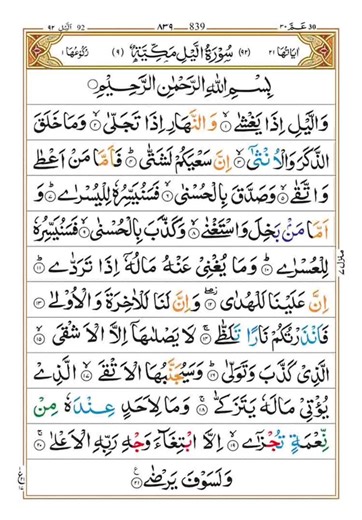 92 اَلَّيْل ٩٢ ٨٣٩ 839 عَمَّ ٣٠ 30
رُكُوْعُهَا ١ (٩) سُوْرَةُ الَّيْلِ مَكِّيَّةٌ (٩٢) اٰيَاتُهَا ٢١
بِسْمِ اللّٰهِ الرَّحْمٰنِ الرَّحِيْمِ
وَالَّيْلِ اِذَا يَغْشٰىۙ ١ وَالنَّهَارِ اِذَا تَجَلّٰىۙ ٢ وَمَا خَلَقَ
الذَّكَرَ وَالْاُنْثٰٓىۙ ٣ اِنَّ سَعْيَكُمْ لَشَتّٰىؕ ٤ فَاَمَّا مَنْ اَعْطٰى
وَاتَّقٰىۙ ٥ وَصَدَّقَ بِالْحُسْنٰىۙ ٦ فَسَنُيَسِّرُهٗ لِلْيُسْرٰىؕ ٧ وَ
اَمَّا مَنْۢ بَخِلَ وَاسْتَغْنٰىۙ ٨ وَكَذَّبَ بِالْحُسْنٰىۙ ٩ فَسَنُيَسِّرُهٗ
لِلْعُسْرٰىؕ ١٠ وَمَا يُغْنِيْ عَنْهُ مَالُهٗۤ اِذَا تَرَدّٰىؕ ١١
اِنَّ عَلَيْنَا لَلْهُدٰىۖ ١٢ وَاِنَّ لَنَا لَلْاٰخِرَةَ وَالْاُوْلٰى ١٣
فَاَنْذَرْتُكُمْ نَارًا تَلَظّٰىۚ ١٤ لَا يَصْلٰىهَاۤ اِلَّا الْاَشْقَىۙ ١٥
الَّذِيْ كَذَّبَ وَتَوَلّٰىؕ ١٦ وَسَيُجَنَّبُهَا الْاَتْقَىۙ ١٧ الَّذِيْ
يُؤْتِيْ مَالَهٗ يَتَزَكّٰىۚ ١٨ وَمَا لِاَحَدٍ عِنْدَهٗ مِنْ
نِّعْمَةٍ تُجْزٰٓىۙ ١٩ اِلَّا ابْتِغَآءَ وَجْهِ رَبِّهِ الْاَعْلٰىۚ ٢٠
وَلَسَوْفَ يَرْضٰى ٢١